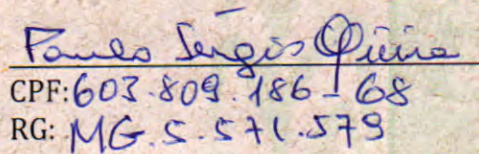 Paulo Sérgio Vieira
CPF: 603.809.186-68
RG: MG.5.571.579